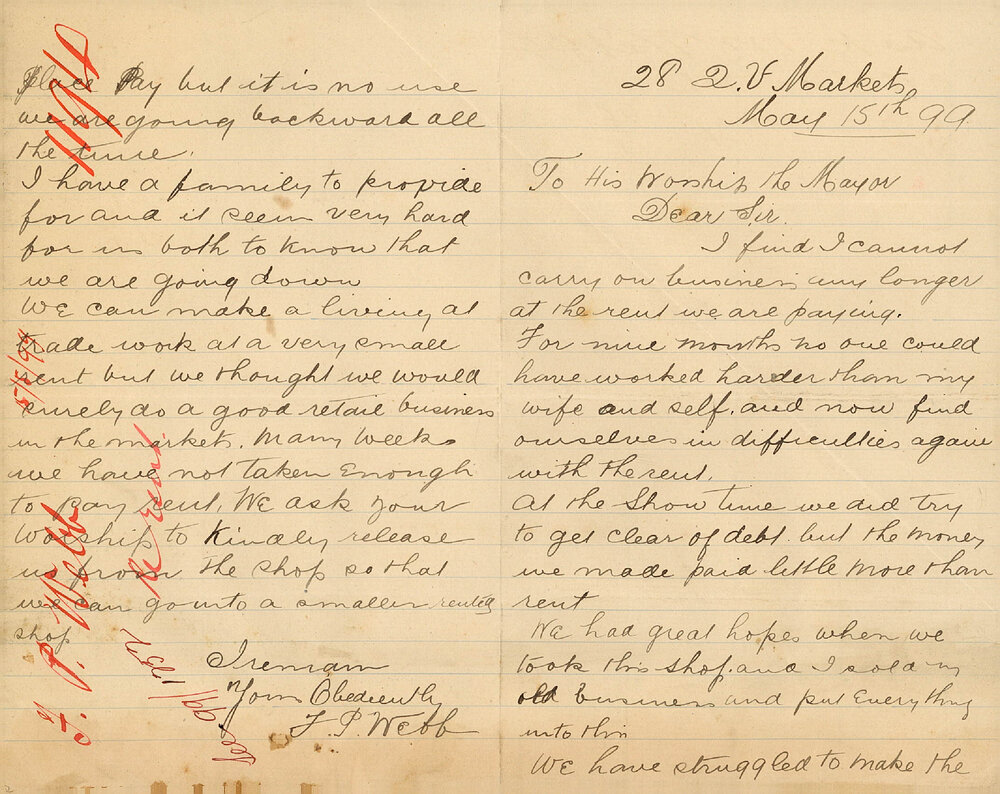 28 Q.V Markets
May 15th 99
To His Worship the Mayor
Dear Sir.
I find I cannot
carry on business any longer
at the rent we are paying.
For nine months no one could
have worked harder than my
wife and self. and now find
ourselves in difficulties again
with the rent.
At the Show time we did try
to get clear of debt. but the money
we made paid little more than
rent
We had great hopes when we
took this shop. and I sold my
old business and put Everything
into this
We have struggled to make the
Place Pay but it is no use
we are going backward all
the time.
I have a family to provide
for and it seems very hard
for us both to know that
we are going down
We can make a living at
trade work at a very small
rent but we thought we would
surely do a good retail business
in the markets. Many Weeks
we have not taken Enough
to pay rent. We ask Your
Worship to Kindly release
us from the shop so that
we can go into a smaller rented
shop
I remain
Yours Obediently
F. P. Webb
F. P. Webb